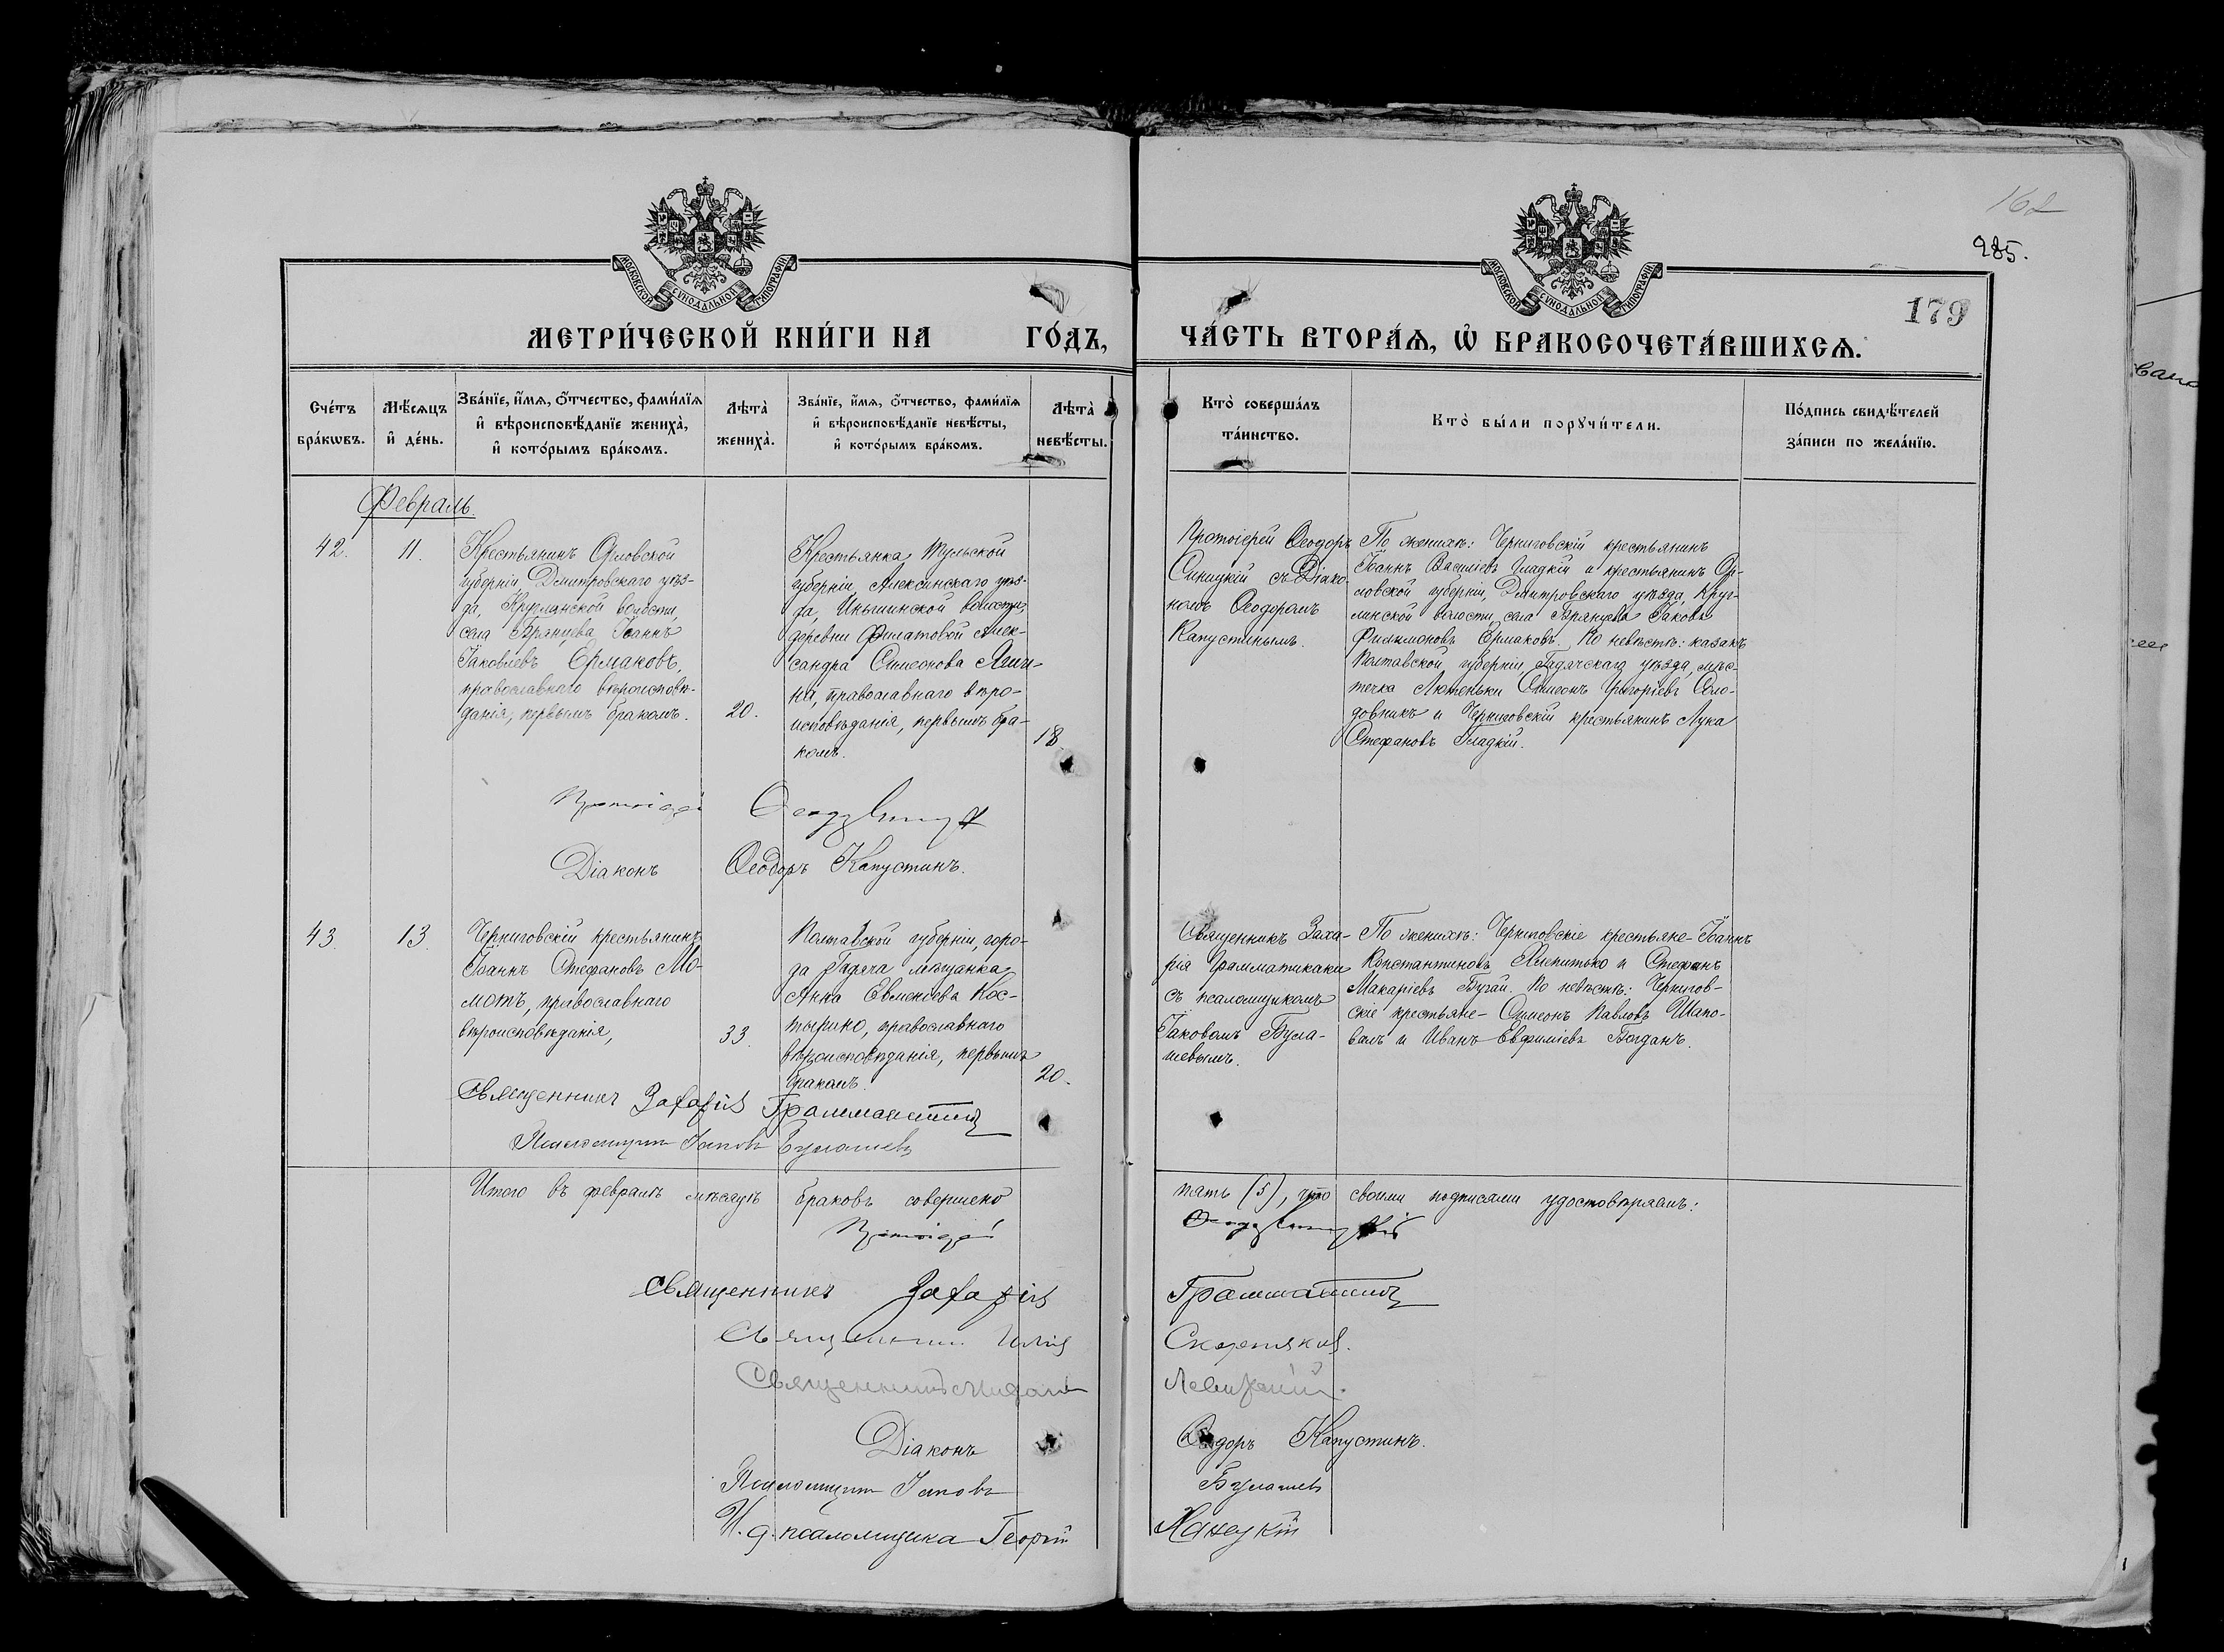 162
285.
179
МОСКОВСКОЙ СУНОДАЛЬНОЙ ТИПОГРАФІИ
МОСКОВСКОЙ СУНОДАЛЬНОЙ ТИПОГРАФІИ
МЕТРИ́ЧЕСКОЙ КНИ́ГИ НА ГО́ДЪ,
ЧА́СТЬ ВТОРА́Ѧ, Ѡ҆ БРАКОСОЧЕТА́ВШИХСѦ.
Сче́тъ
бра́кѡвъ.
Мѣ́сѧцъ
и҆ де́нь.
Зва́нїе, и҆́мѧ, ѻ҆́тчество, фами́лїѧ
и҆ вѣроисповѣ́данїе жениха̀,
и҆ кото́рымъ бра́комъ.
Лѣта̀
жениха̀.
Зва́нїе, и҆́мѧ, ѻ҆́тчество, фами́лїѧ
и҆ вѣроисповѣ́данїе невѣ́сты,
и҆ кото́рымъ бра́комъ.
Лѣта̀
невѣ́сты.
Кто̀ соверша́лъ
та́инство.
Кто̀ бы́ли порꙋчи́тели.
По́дпись свидѣ́телей
за́писи по жела́нїю.
Февраль.
42.
11.
Крестьянинъ Орловской
губерніи Дмитровскаго уѣз-
да, Круглянской волости,
села Брянцева Іоаннъ
Іаковлевъ Ермаковъ,
православнаго вѣроисповѣ-
данія, первымъ бракомъ.
20.
Крестьянка Тульской
губерніи, Алексинскаго уѣз-
да, Иньшинской волости,
деревни Филатовой Алек-
сандра Симеонова
на, православнаго вѣро-
исповѣданія, первымъ бра-
комъ.
18.
Протоіерей Ѳеодоръ
Синицкій съ Діако-
номъ Ѳеодоромъ
Капустинымъ.
По женихѣ: Черниговскій крестьянинъ
Іоаннъ Василіевъ Гладкій и крестьянинъ Ор-
ловской губерніи, Дмитровскаго уѣзда, Круг-
лянской волости села Брянцева Іаковъ
Филимоновъ Ермаковъ. По невѣстѣ: казакъ
Полтавской губерніи, Гадячскаго уѣзда, мѣс-
течка Лютеньки Симеонъ Григоріевъ Соло-
довникъ и Черниговскій крестьянинъ Лука
Стефановъ Гладкій.
Протоіерей
Діаконъ Ѳеодоръ Капустинъ.
43.
13.
Черниговскій крестьянинъ
Іоаннъ Стефановъ Мо-
мотъ, православнаго
вѣроисповѣданія,
33.
Полтавской губерніи, горо-
да Гадяча мѣщанка
Анна Евменіева Кос-
тырко, православнаго
вѣроисповѣданія, первымъ
бракомъ.
20.
Священникъ Заха-
рія Грамматикаки
съ псаломщикомъ
Іаковомъ Була-
шевымъ.
По женихѣ: Черниговскіе крестьяне- Іоаннъ
Константиновъ и Стефанъ
Макаріевъ Бугай. По невѣстѣ: Чернигов-
скіе крестьяне- Симеонъ Павловъ Шапо-
валъ и Иванъ Евфиміевъ Богданъ.
Священникъ Захарія
Псаломщикъ Іаковъ Булашевъ
Итого въ февралѣ мѣсяцѣ браковъ совершено
пять (5), что своими подписями удостовѣряемъ:
Протоіерей
Священникъ Захарія
Священникъ Илія
Священникъ
Діаконъ Ѳеодоръ Капустинъ.
Псаломщикъ Іаковъ Булашевъ
И. д. псаломщика Георгій